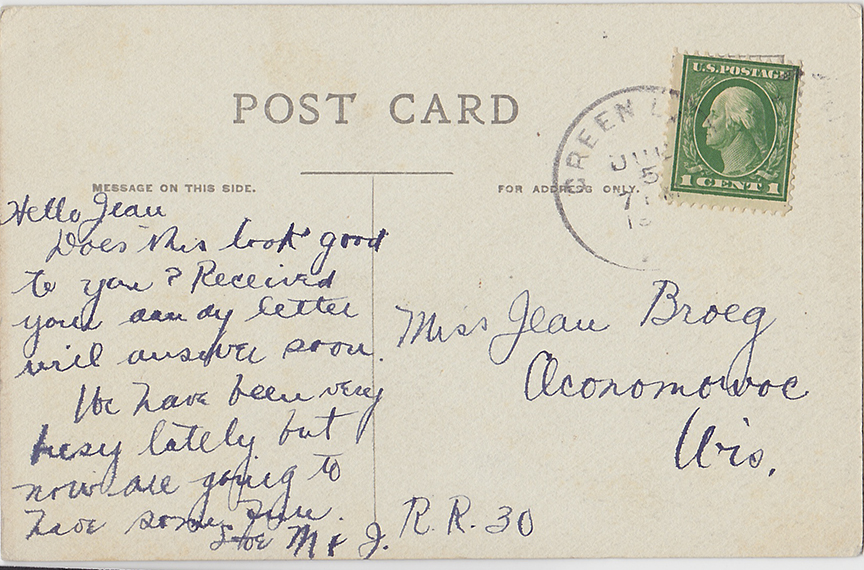 POST CARD
U.S. POSTAGE
1 CENT 1
GREEN L
5
MESSAGE ON THIS SIDE.
FOR ADDRESS ONLY.
Hello Jean
Does this look good
to you? Received
your dandy letter
will answer soon.
We have been very
busy lately but
now are going to
have some fun.
M & J.
Miss Jean Broeg
Oconomowoc
Wis.
R.R. 30